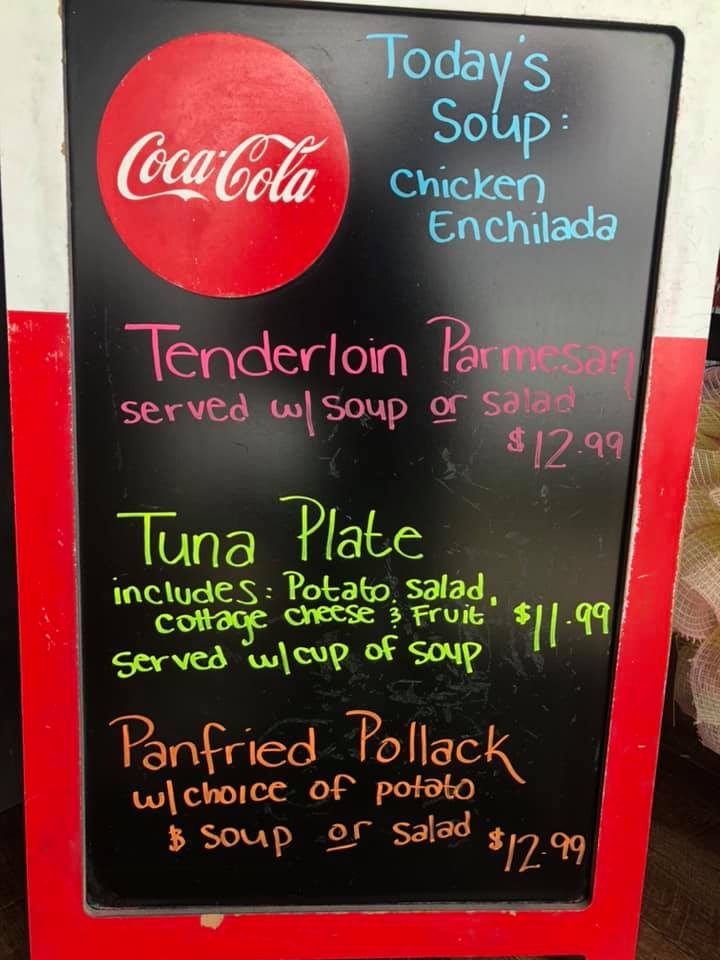 Coca-Cola
Today's
Soup:
Chicken
Enchilada
Tenderloin Parmesan
served w/ soup or salad
$12.99
Tuna Plate
includes: Potato salad,
cottage cheese & Fruit $11.99
served w/ cup of soup
Panfried Pollack
w/ choice of potato
& soup or salad $12.99